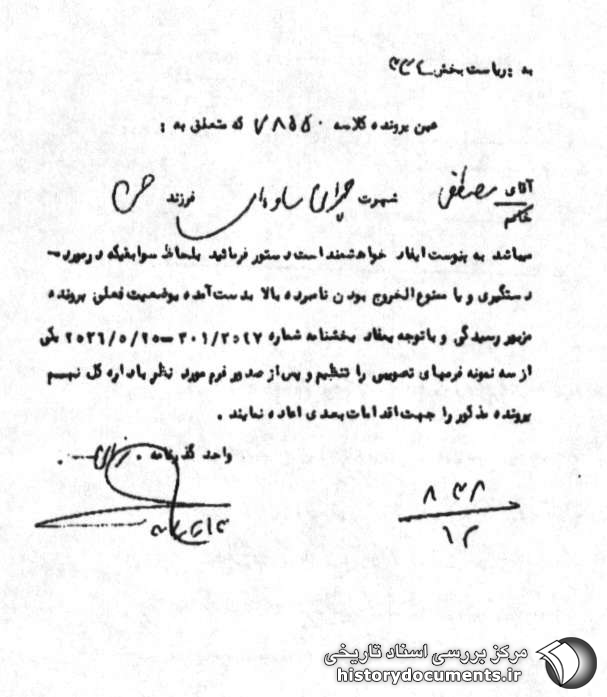 به : ریاست بخش ۳۳۲
عین پرونده کلاسه ۷۸۵۵۰ که متعلق به :
آقای مصطفی شهرت چمرانی ساوه‌ای فرزند حسن
خانم
میباشد به پیوست ایفاد خواهشمند است دستور فرمائید بلحاظ سوابقیکه در مورد
دستگیری و یا ممنوع الخروج بودن نامبرده بالا بدست آمده بوضعیت فعلی پرونده
مزبور رسیدگی و با توجه بمفاد بخشنامه شماره یکی
از سه نمونه فرمهای تصویبی را تنظیم و پس از صدور فرم مورد نظر باداره کل نهم
پرونده مذکور را جهت اقدامات بعدی اعاده نمایند .
واحد گذرنامه .
مرکز بررسی اسناد تاریخی
historydocuments.ir